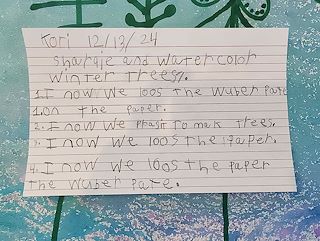 Kori 12/13/24
Sharpie and Watercolor
Winter Trees.
1. I now We loos the Wuber Pare
1. On the Paper.
2. I now We PhasT To mak Trees.
3. I now We loos The Paper.
4. I now We loos the PaPer
The Wuber Pare.